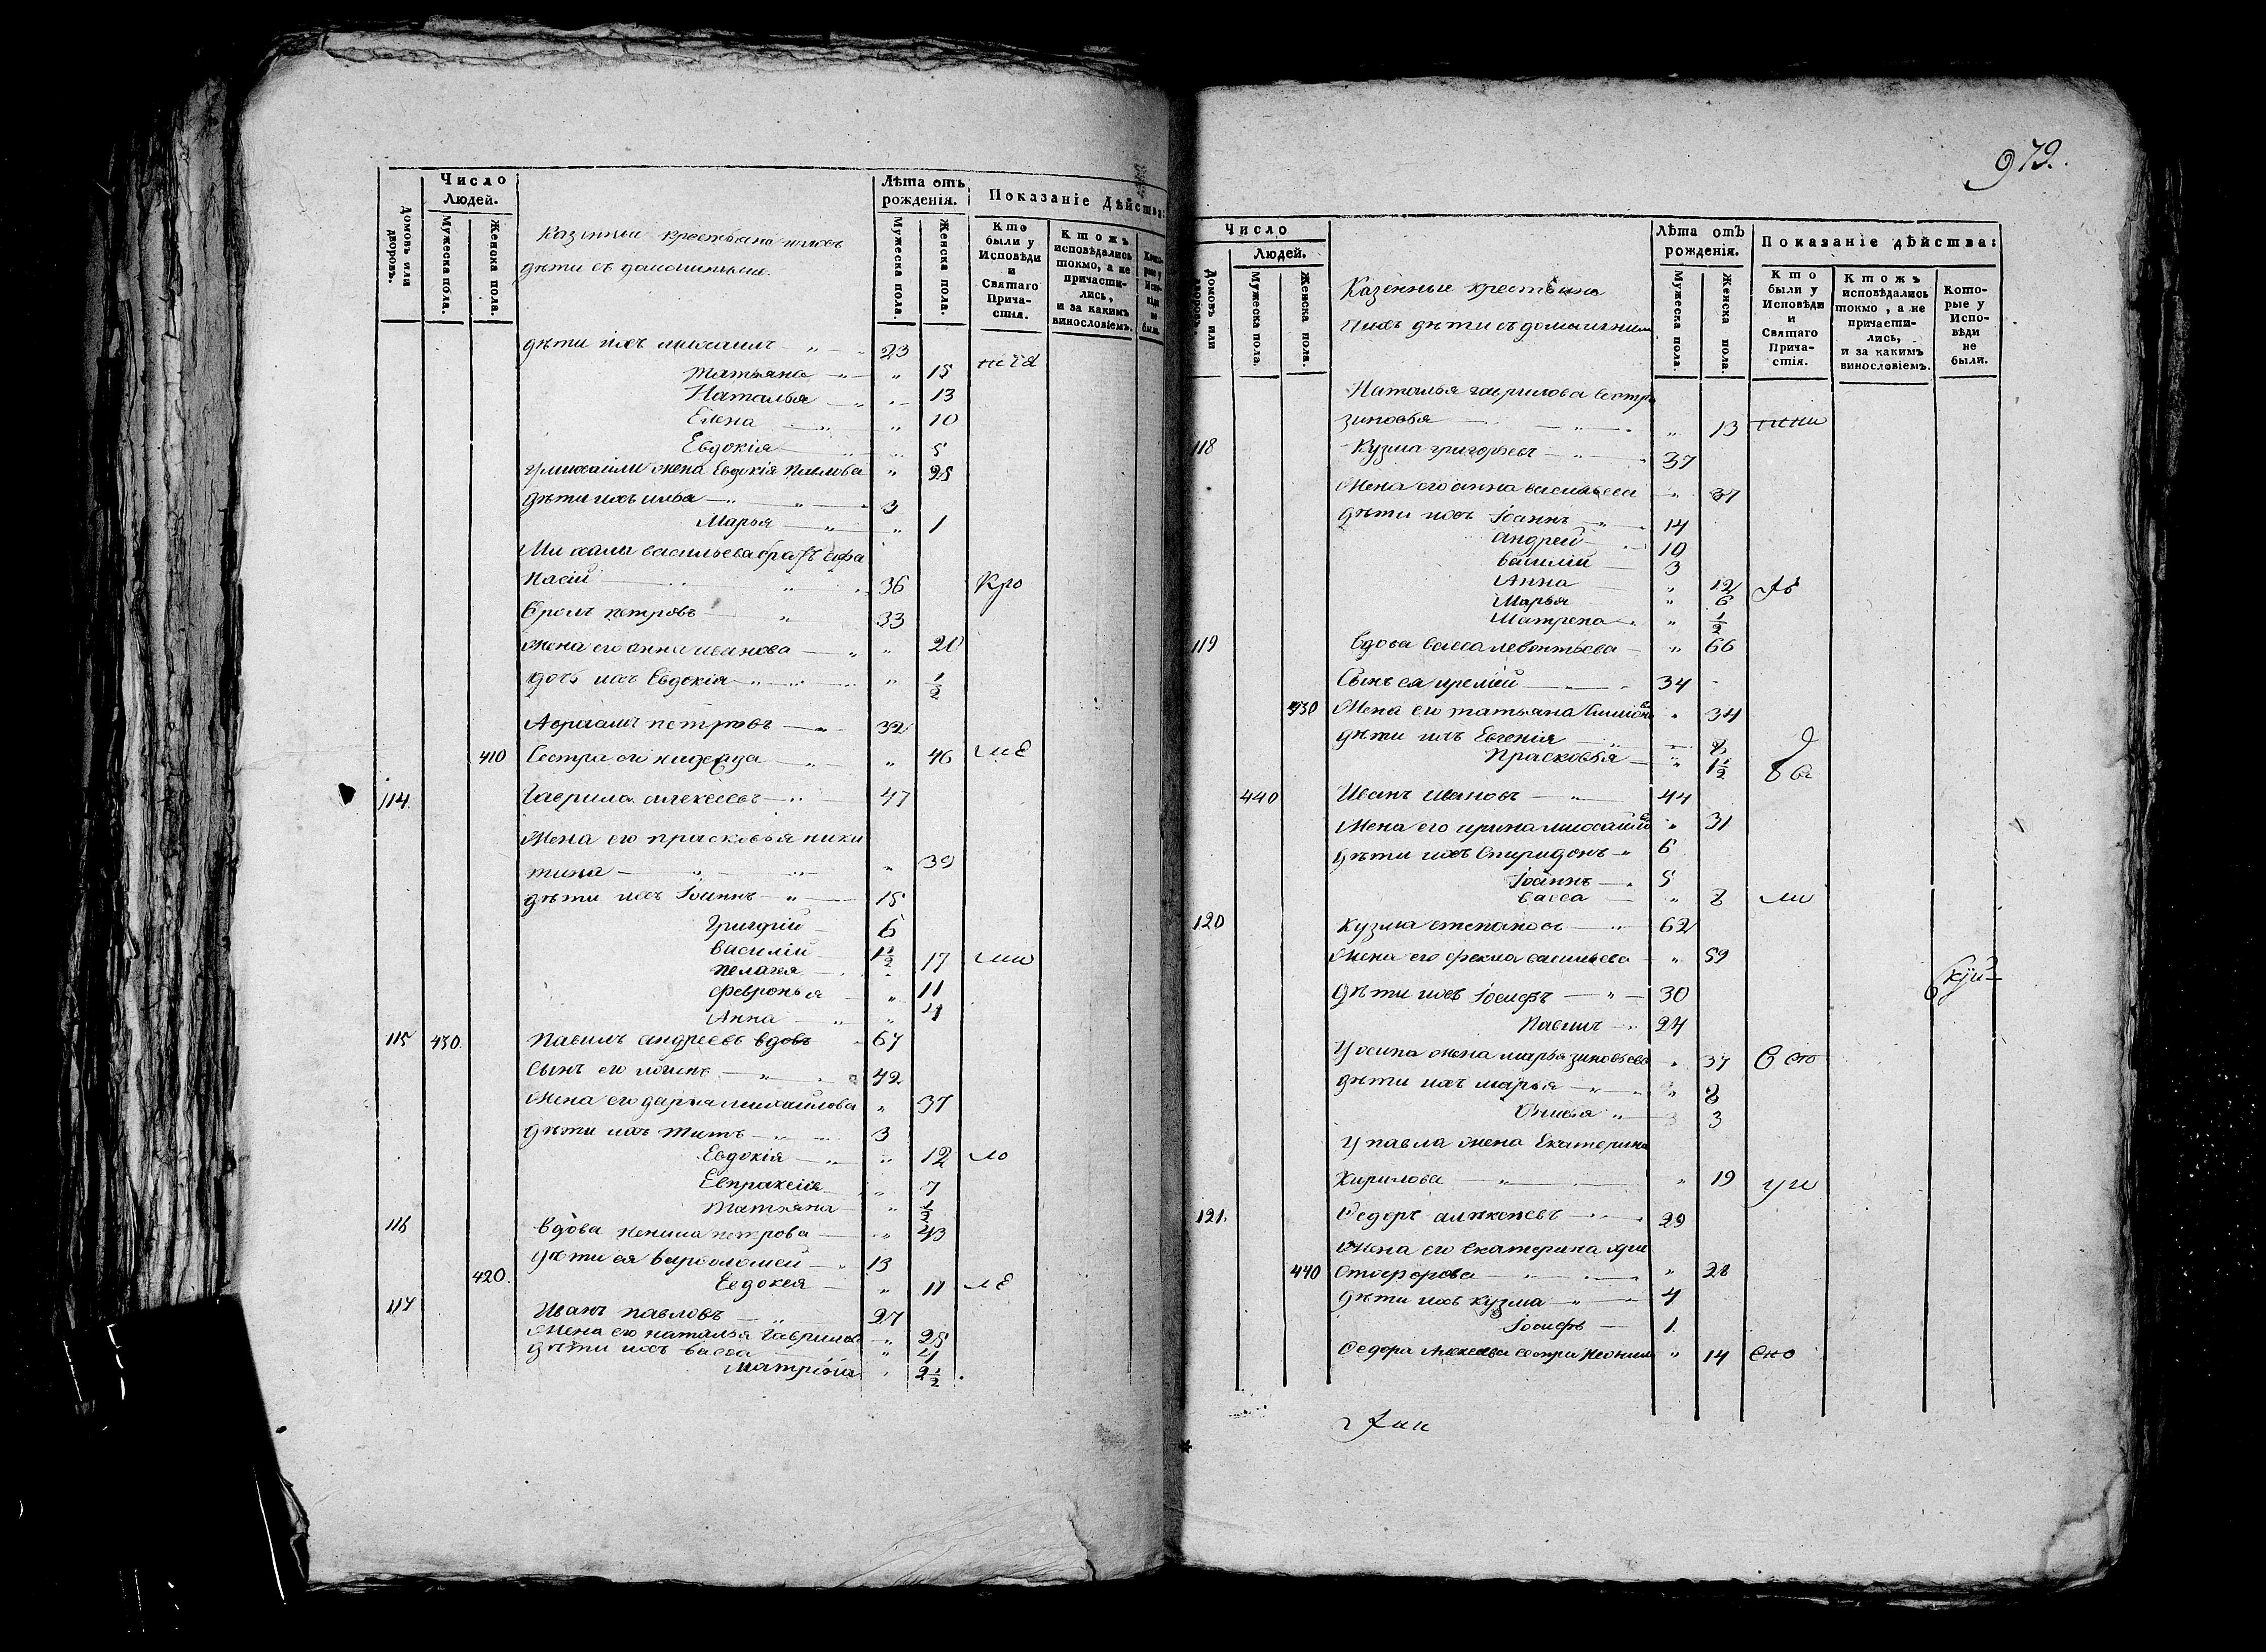 Число
Людей.
Домовъ или дворовъ.
Мужеска пола.
Женска пола.
Казенныи крестьяна ихъ
дѣти съ домашными.
Лѣта отъ
рожденія.
Мужеска пола.
Женска пола.
Показаніе Дѣйства:
Кто
были у
Исповѣди
и
Святаго
Прича-
стія.
Ктожъ
исповѣдались
токмо, а не
причасти-
лись,
и за какимъ
винословіемъ.
дѣти ихъ михаилъ 23
Татьяна „ 15
Наталья 13
Елена „ 10
Евдокія 5
у михаила жена Евдокія Павлова „ 25
дѣти ихъ илья 3
Марья „ 1
Михаила васильева братъ афа
насій 36
Фролъ петровъ 33
жена его анна иванова „ 20
дочь ихъ Евдокія „ 1/2
Авраамъ петровъ 32
410 Сестра его „ 46
114. Гаврила алексеевъ 47
Жена его прасковья ники
тина „ 39
дѣти ихъ Іоаннъ 15
Григорій 6
василій 1 1/2
пелагея 17
февронья „ 11
Анна „ 4
115 430. Павилъ андреевъ вдовъ 67
Сынъ его логинъ 42
Жена его дарья михаилова „ 37
дѣти ихъ титъ 3
Евдокія „ 12
Евпраксия „ 7
Татьяна „ 1/2
116 Вдова Ненила петрова „ 43
дѣти ея варфоломей 13
420. Евдокея „ 11
117 Иванъ павловъ 27
Жена его наталья Гаврилова „ 25
дѣти ихъ васса „ 4
Матрона „ 2 1/2
979.
Число
Людей.
Домовъ или дворовъ.
Мужеска пола.
Женска пола.
Казенные крестьяна
ихъ дѣти съ домашними
Лѣта отЪ
рожденія.
Мужеска пола.
Женска пола.
Показаніе дѣйства:
Кто
были у
Исповѣди
и
Святаго
Прича-
стія.
Ктожъ
исповѣдались
токмо, а не
причасти-
лись,
и за какимъ
винословіемъ.
Кото-
рые у
Испо-
вѣди
не
были.
Наталья гаврилова сестра
зиновья „ 13
118 Кузма григорьевъ 37
Жена его анна васильева 37
дѣти ихъ Іоаннъ 14
андрей 10
василій 3
Анна „ 12
Марья „ 6
Матрена „ 1/2
119 вдова васса левонтьева „ 66
Сынъ ея 34
430 Жена его татьяна „ 34
дѣти ихъ Евгенія 8
Прасковья „ 1 1/2
440 Иванъ Ивановъ 44
Жена его ирина михаилова „ 31
дѣти ихъ Спиридонъ 6
Іоаннъ 5
васса „ 8
120 кузма степановъ 62
Жена его фекла васильева „ 59
дѣти ихъ Іосифъ 30
Павилъ 24
У осипа жена марья зиновьева „ 37
дѣти ихъ марья „ 8
3
У павла жена Екатерина
Кирилова „ 19
121. Федоръ алексеевъ 29
Жена его екатерина хри
440 стофорова „ 28
дѣти ихъ кузма 4
Іосифъ 1.
Федора Алексеева сестра Неонила „ 14